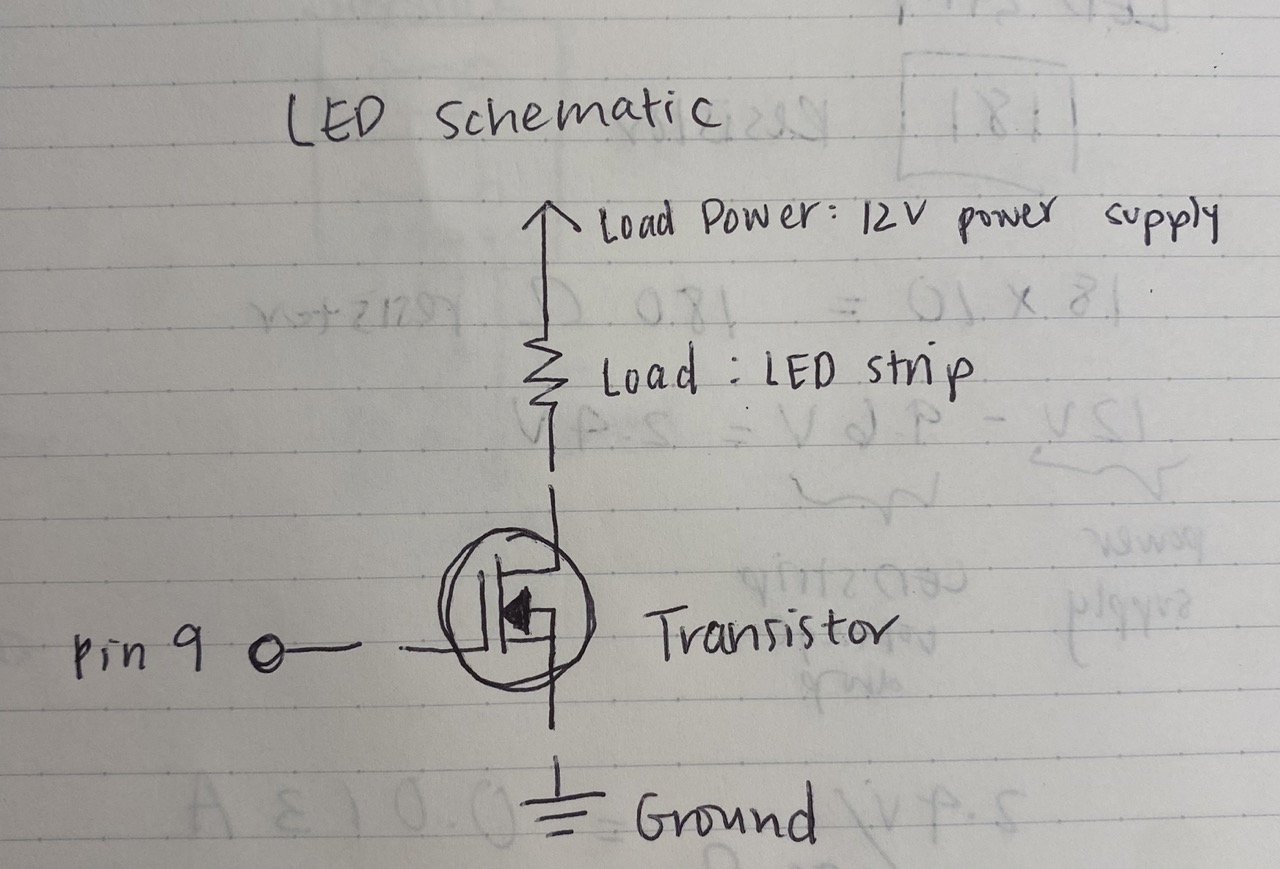 LED Schematic
Load Power: 12V power supply
Load : LED strip
Pin 9
Transistor
Ground